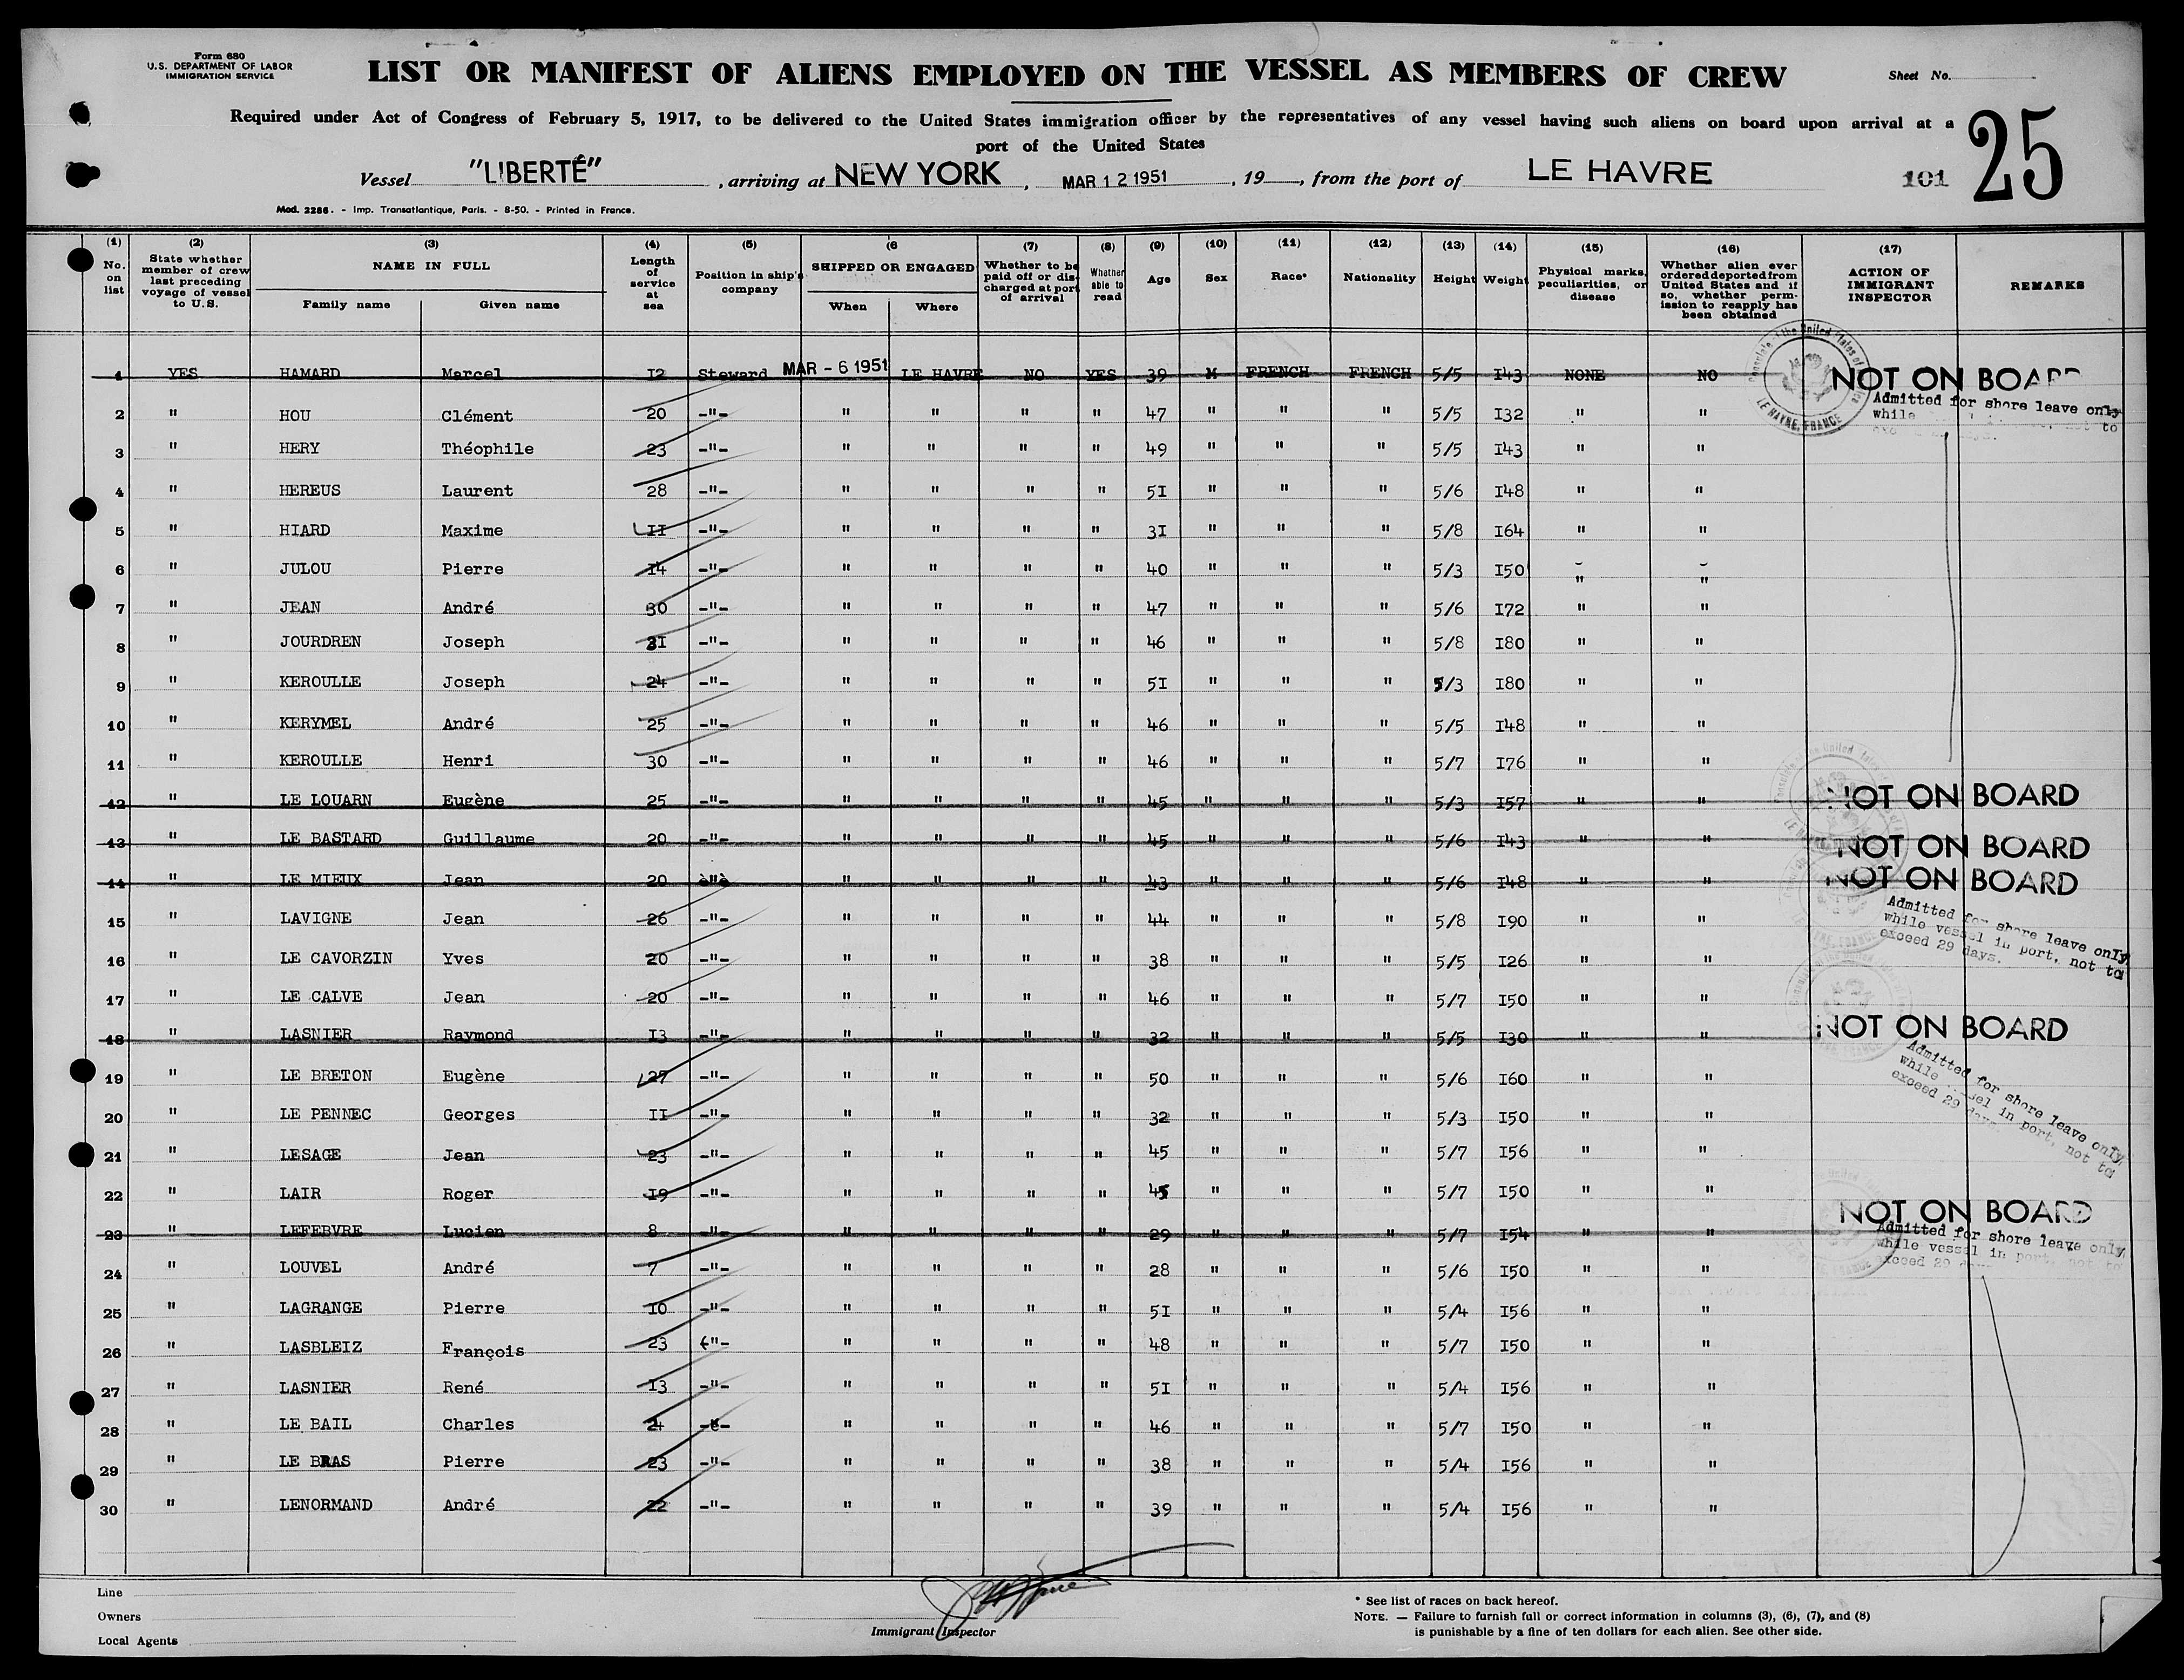 Form 680
U.S. DEPARTMENT OF LABOR
IMMIGRATION SERVICE
LIST OR MANIFEST OF ALIENS EMPLOYED ON THE VESSEL AS MEMBERS OF CREW
Sheet No.
Required under Act of Congress of February 5, 1917, to be delivered to the United States immigration officer by the representatives of any vessel having such aliens on board upon arrival at a
port of the United States
25
Vessel "LIBERTÉ", arriving at NEW YORK, MAR 12 1951, 19__, from the port of LE HAVRE 101
Mod. 2286. - Imp. Transatlantique, Paris. - 8-50. - Printed in France.
(1) (2) (3) (4) (5) (6 (7) (8) (9) (10) (11) (12) (13) (14) (15) (16) (17)
No. on list
State whether member of crew last preceding voyage of vessel to U.S.
NAME IN FULL
Family name Given name
Length of service at sea
Position in ship's company
SHIPPED OR ENGAGED
When Where
Whether to be paid off or discharged at port of arrival
Whether able to read
Age
Sex
Race*
Nationality
Height
Weight
Physical marks, peculiarities, or disease
Whether alien ever ordered deported from United States and if so, whether permission to reapply has been obtained
ACTION OF IMMIGRANT INSPECTOR
REMARKS
1 YES HAMARD Marcel I2 Steward MAR - 6 1951 LE HAVRE NO YES 39 M FRENCH FRENCH 5/5 I43 NONE NO NOT ON BOARD
Admitted for shore leave only
while
2 " HOU Clément 20 -"- " " " " 47 " " " 5/5 I32 " "
3 " HERY Théophile 23 -"- " " " " 49 " " " 5/5 I43 " "
4 " HEREUS Laurent 28 -"- " " " " 5I " " " 5/6 I48 " "
5 " HIARD Maxime II -"- " " " " 3I " " " 5/8 I64 " "
6 " JULOU Pierre I4 -"- " " " " 40 " " " 5/3 I50 " "
7 " JEAN André 30 -"- " " " " 47 " " " 5/6 I72 " "
8 " JOURDREN Joseph 3I -"- " " " " 46 " " " 5/8 I80 " "
9 " KEROULLE Joseph 24 -"- " " " " 5I " " " 5/3 I80 " "
10 " KERYMEL André 25 -"- " " " " 46 " " " 5/5 I48 " "
11 " KEROULLE Henri 30 -"- " " " " 46 " " " 5/7 I76 " "
12 " LE LOUARN Eugène 25 -"- " " " " 45 " " " 5/3 I57 " " NOT ON BOARD
13 " LE BASTARD Guillaume 20 -"- " " " " 45 " " " 5/6 I43 " " NOT ON BOARD
14 " LE MIEUX Jean 20 è"è " " " " 43 " " " 5/6 I48 " " NOT ON BOARD
15 " LAVIGNE Jean 26 -"- " " " " 44 " " " 5/8 I90 " "
Admitted for shore leave only
while vessel in port, not to
exceed 29 days.
16 " LE CAVORZIN Yves 20 -"- " " " " 38 " " " 5/5 I26 " "
17 " LE CALVE Jean 20 -"- " " " " 46 " " " 5/7 I50 " "
18 " LASNIER Raymond I3 -"- " " " " 32 " " " 5/5 I30 " " NOT ON BOARD
Admitted for shore leave only,
while vessel in port, not to
exceed 29 days
19 " LE BRETON Eugène 27 -"- " " " " 50 " " " 5/6 I60 " "
20 " LE PENNEC Georges II -"- " " " " 32 " " " 5/3 I50 " "
21 " LESAGE Jean 23 -"- " " " " 45 " " " 5/7 I56 " "
22 " LAIR Roger I9 -"- " " " " 45 " " " 5/7 I50 " "
23 " LEFEBVRE Lucien 8 -"- " " " " 29 " " " 5/7 I54 " " NOT ON BOARD
Admitted for shore leave only,
while vessel in port, not to
exceed 29
24 " LOUVEL André 7 -"- " " " " 28 " " " 5/6 I50 " "
25 " LAGRANGE Pierre I0 -"- " " " " 5I " " " 5/4 I56 " "
26 " LASBLEIZ François 23 -"- " " " " 48 " " " 5/7 I50 " "
27 " LASNIER René I3 -"- " " " " 5I " " " 5/4 I56 " "
28 " LE BAIL Charles 24 -"- " " " " 46 " " " 5/7 I50 " "
29 " LE BRAS Pierre 23 -"- " " " " 38 " " " 5/4 I56 " "
30 " LENORMAND André 22 -"- " " " " 39 " " " 5/4 I56 " "
Line
Owners
Local Agents
Immigrant Inspector
* See list of races on back hereof.
NOTE. — Failure to furnish full or correct information in columns (3), (6), (7), and (8)
is punishable by a fine of ten dollars for each alien. See other side.